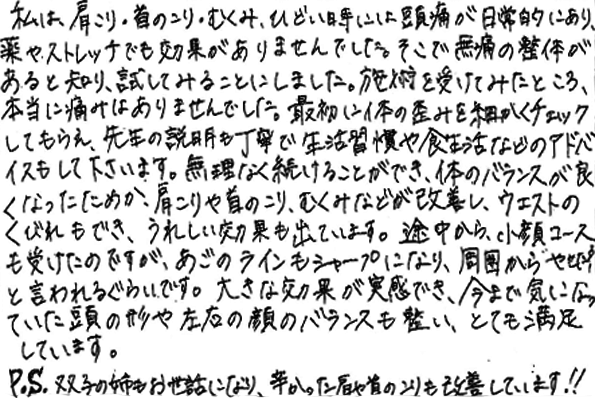 私は、肩こり・首のこり・むくみ、ひどい時には頭痛が日常的にあり、
薬やストレッチでも効果がありませんでした。そこで無痛の整体が
あると知り、試してみることにしました。施術を受けてみたところ、
本当に痛みはありませんでした。最初に体の歪みを細かくチェック
してもらえ、先生の説明も丁寧で生活習慣や食生活などのアドバ
イスもして下さいます。無理なく続けることができ、体のバランスが良
くなったためか、肩こりや首のこり、むくみなどが改善し、ウエストの
くびれもでき、うれしい効果も出ています。途中から、小顔コース
も受けたのですが、あごのラインもシャープになり、周囲からやせた?
と言われるぐらいです。大きな効果が実感でき、今まで気になっ
ていた頭の形や左右の顔のバランスも整い、とても満足
しています。
P.S. 双子の姉もお世話になり、辛かった肩や首のこりも改善しています!!